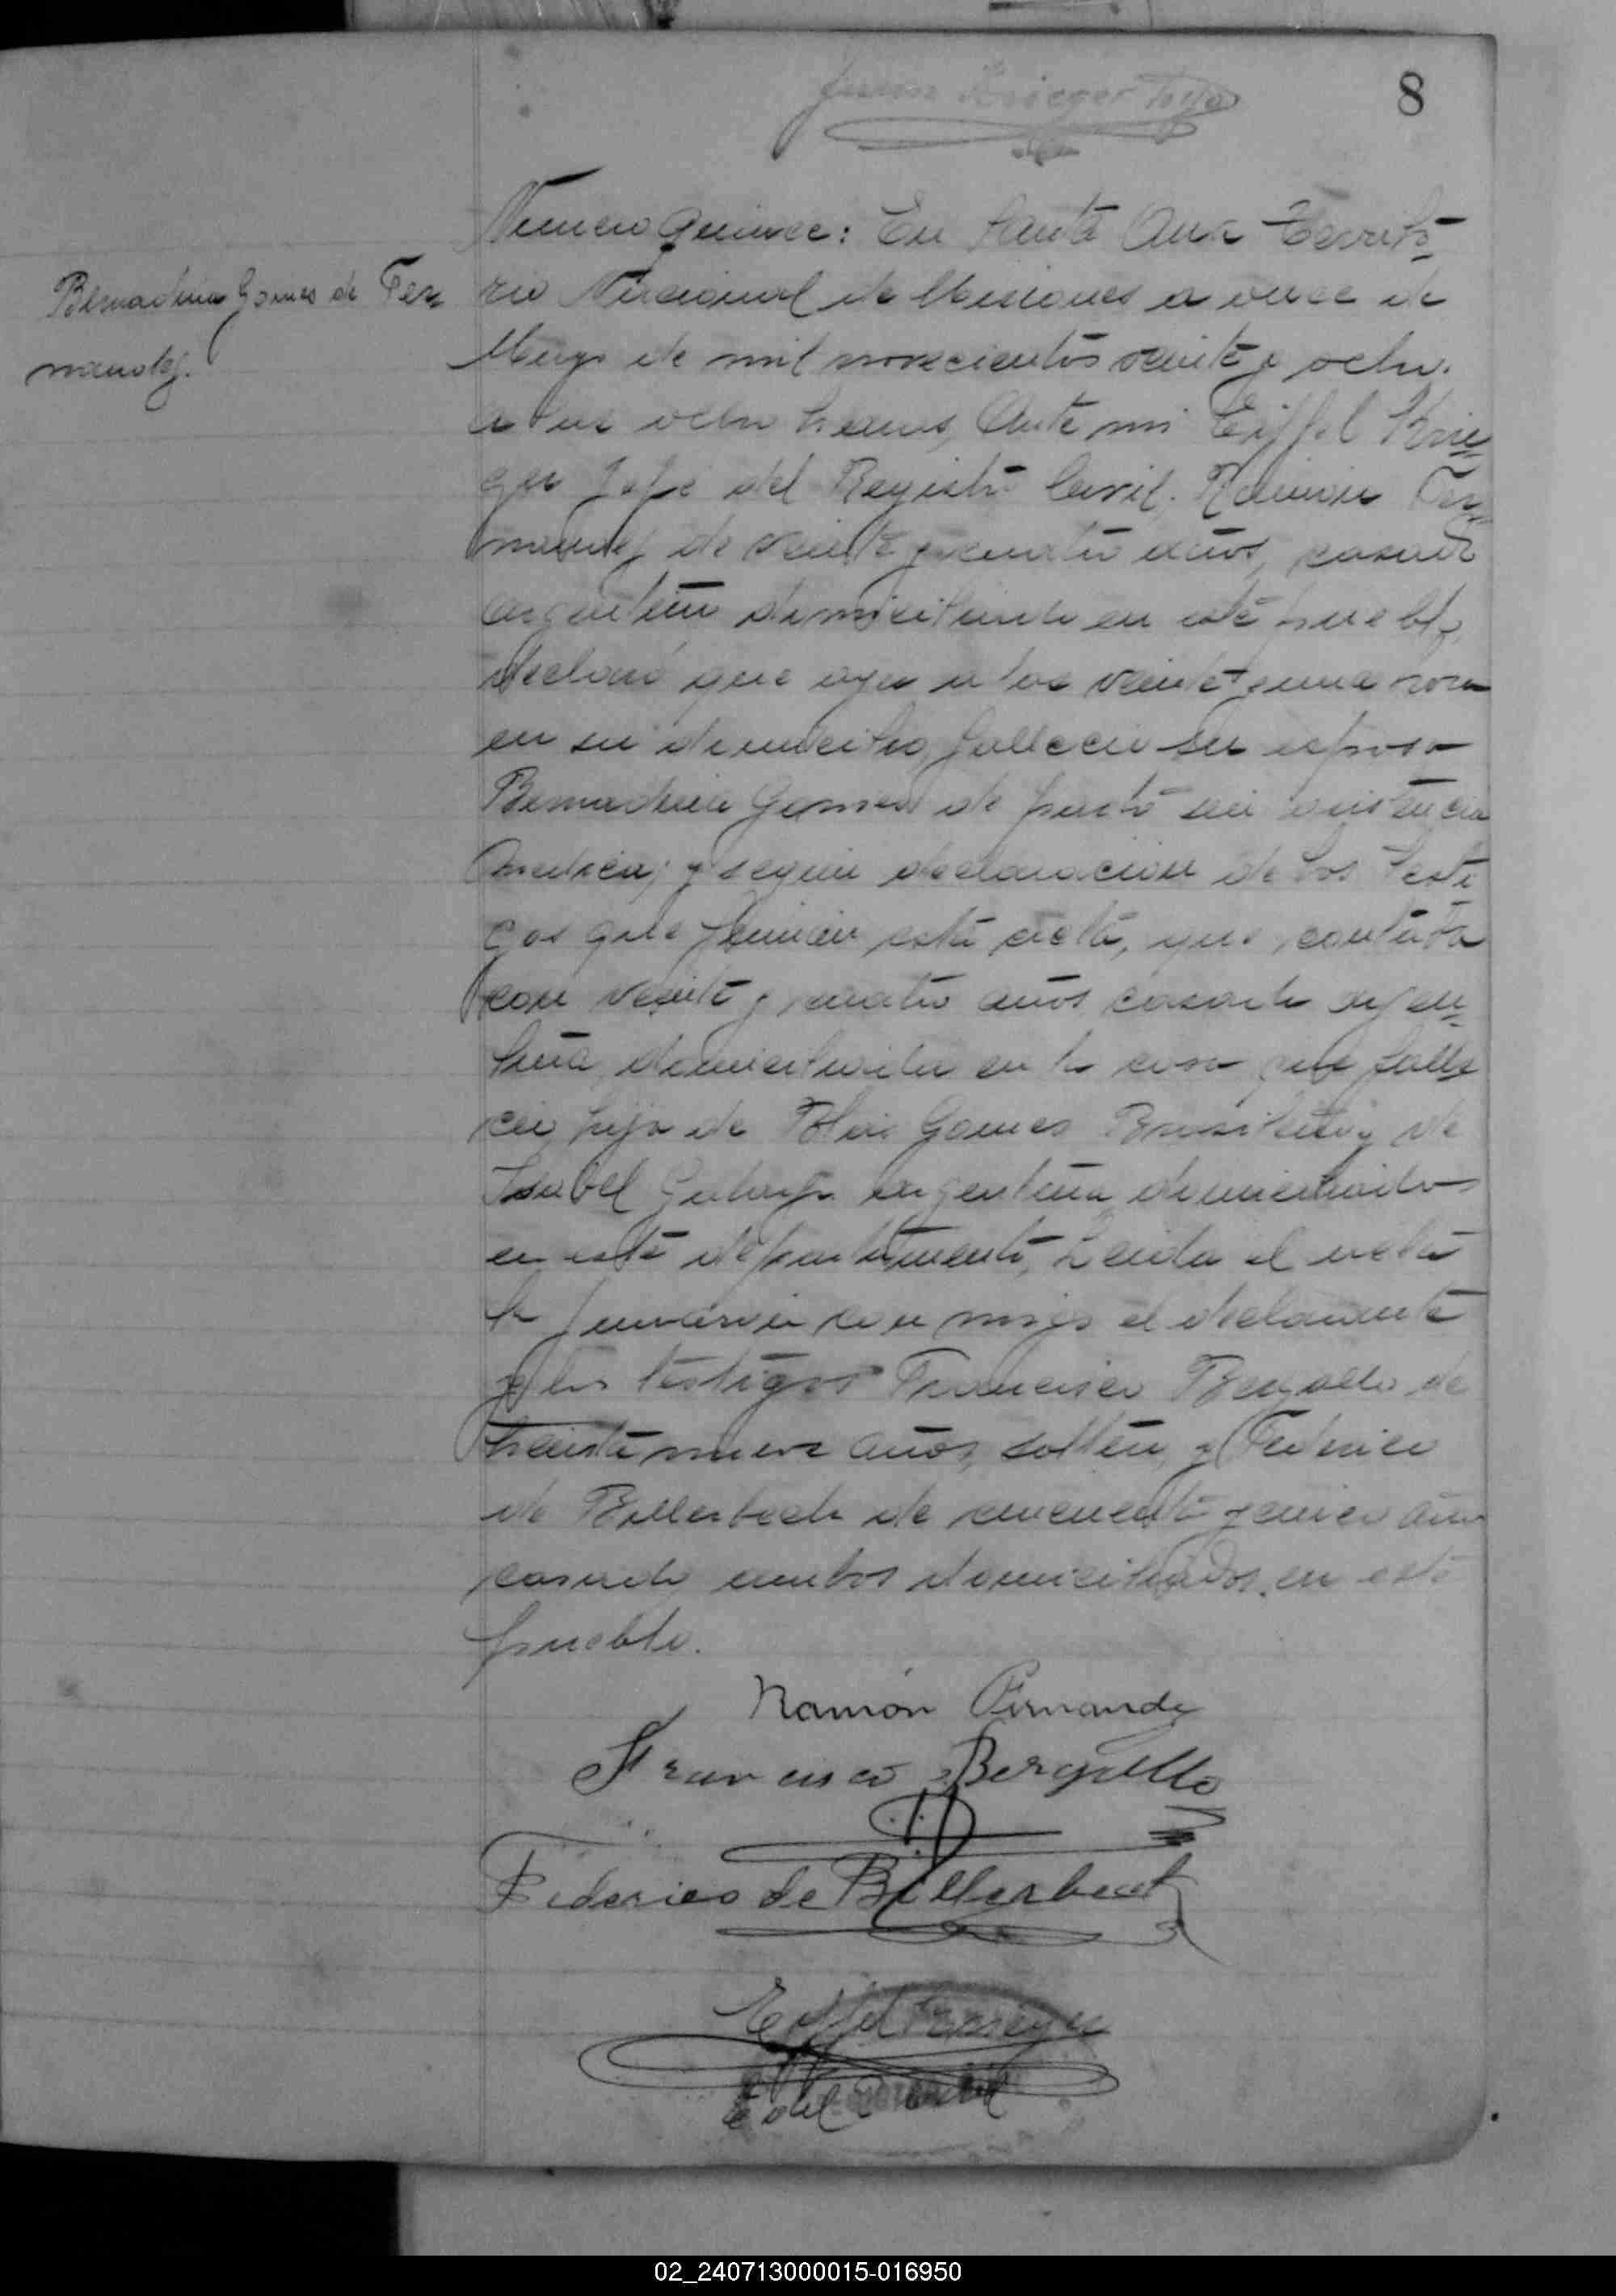 8
Juan Krieger hijo
Bernadina Gomes de Fer
nandez.
Numero Quince: En Santa Ana Territo
rio Nacional de Misiones a once de
Mayo de mil novecientos veinte y ocho.
a las ocho horas, Ante mi Eiffel Krie
ger Jefe del Registro Civil, Ramon Fer
nandez de veinte y cuatro años, casado
argentino domiciliado en este pueblo,
declaró que ayer a las veinte y una hora
en su domicilio, fallecio su esposa
Bernadina Gomes de parto sin asistencia
medica; y segun declaracion de los testi
gos que firman esta acta, que contaba
con veinte y cuatro años casada argen
tina, domiciliada en la casa que falle
cio, hija de Blas Gomes Brasilero y de
Isabel argentina, domiciliados
en este departamento, Leida el acta
la firmaron con migo el declarante
y los testigos Francisco Bergallo de
treinta nueve años, soltero, y Federico
de Billerbeck de cincuenta y cinco años
casado ambos domiciliados en este
pueblo.
Ramón Fernandez
Francisco Bergallo
Federico de Billerbeck
Eiffel Krieger
02_240713000015-016950